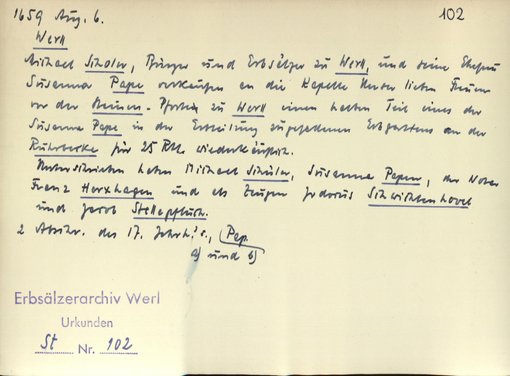 1659 Aug. 6. 102
Werl
Michael Schöler, Bürger und Erbsälzer zu Werl, und seine Ehefrau
Susanna Pape verkaufen an die Kapelle Unser lieben Frauen
vor der Pforte zu Werl einen halben Teil eines der
Susanna Pape in der Erbteilung zugefallenen Erbgartens an der
für 25 Rtl. wiederkäuflich.
Unterschrieben haben Michael Schüler, Susanna Papen, der Notar
Franz Herxhagen und als Zeugen Jodocus Schwichtenhovel
und Jacob
2 Abschr. des 17. Jahrh.s, Pap.
a) und b)
Erbsälzerarchiv Werl
Urkunden
St Nr. 102